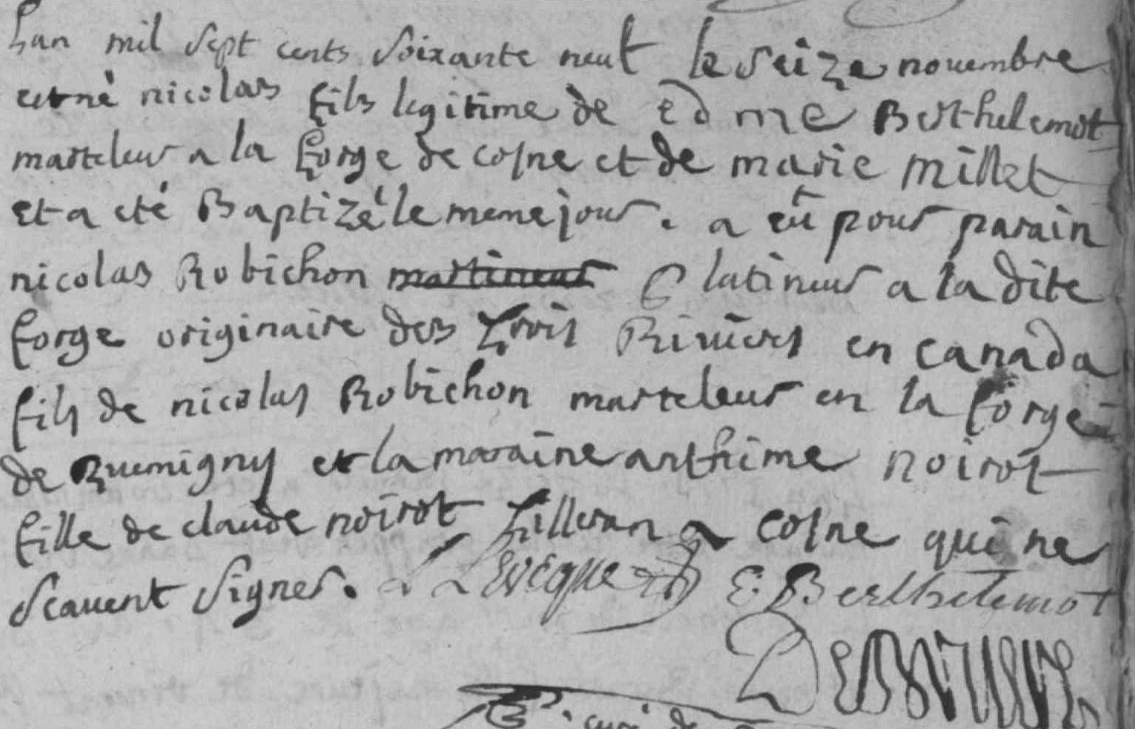 Lan mil sept cents soixante neuf le seize novembre
est né nicolas fils legitime de edme Berthelemot
marteleur a la forge de cosne et de marie millet
et a eté Baptizé le meme jour. a eu pour parain
nicolas Robichon martineur platineur a la dite
forge originaire des trois Rivieres en canada
fils de nicolas Robichon marteleur en la forge
de Ruemigny et la maraine anthime noirot
fille de claude noirot a cosne qui ne
scavent signer. L Levêque E. Berthelemot
curé de